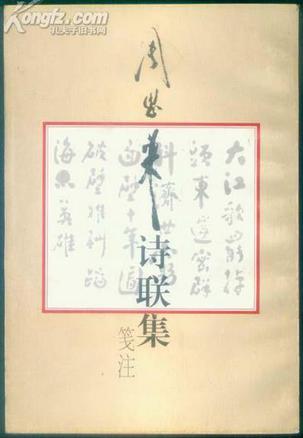 Kongfz.com
孔夫子旧书网
周恩来
诗联集
笺注
大江歌罷掉
頭東邃密群
科濟世窮
面壁十年圖
破壁難酬蹈
海亦英雄